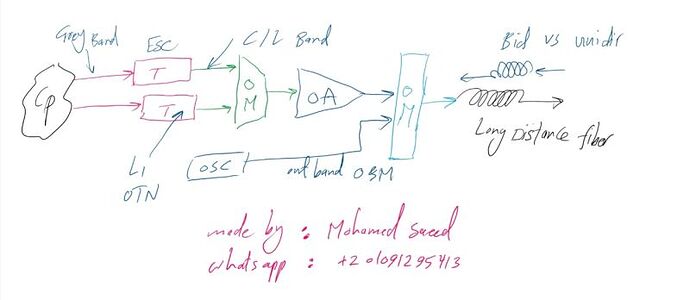 Grey Band
ESC
C/L Band
Bid vs unidir
CP
T
T
OM
OA
OM
Long Distance fiber
L1
OTN
OSC
out band OSM
made by : Mohamed Saeed
whatsapp : +201091295413